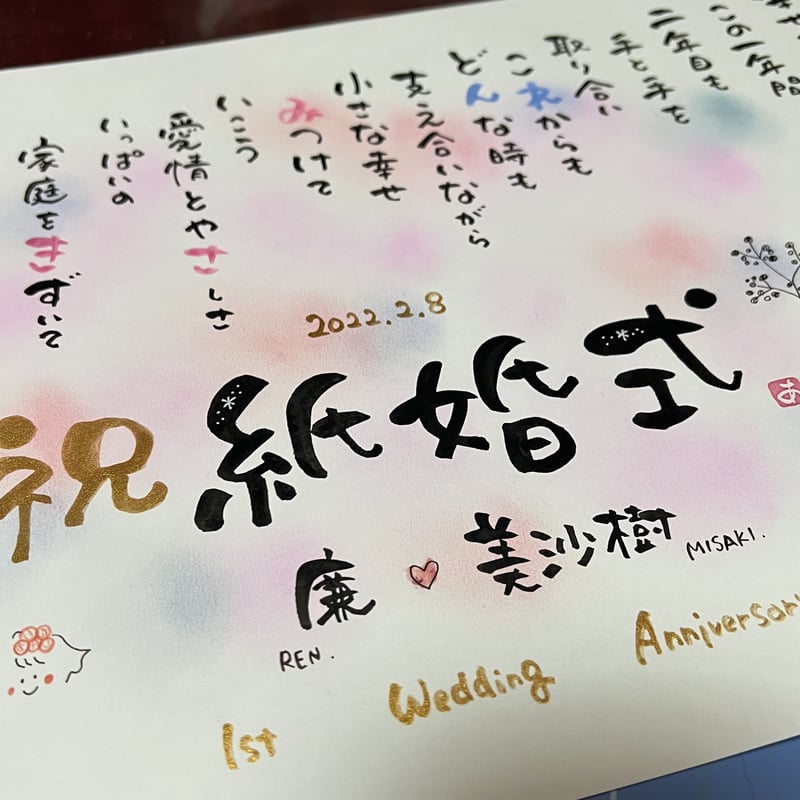 この一年間
二年目も
手と手を
取り合い
これからも
どんな時も
支え合いながら
小さな幸せ
みつけて
いこう
愛情とやさしさ
いっぱいの
家庭をきずいて
2022.2.8
祝 紙婚式
あ
廉 美沙樹
REN. MISAKI.
1st Wedding Anniversar